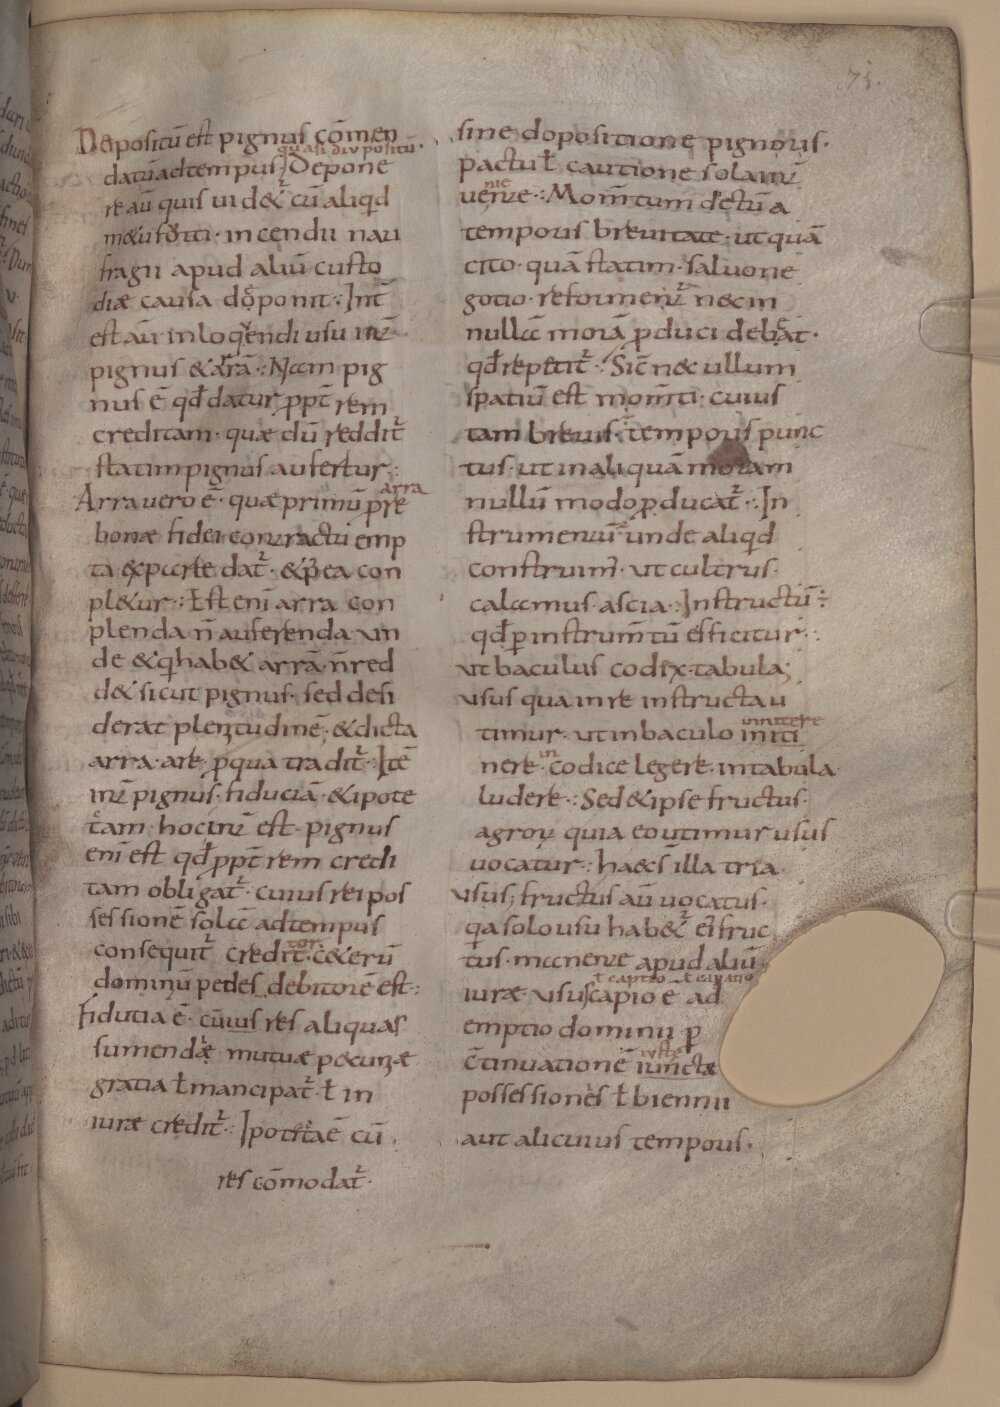 71.
Depositũ est pignus cõmen
quasi diu positũ.
datũ ad tempus; Depone
re aũ quis uidet᷑ cũ aliqd
metu furti· incendii nau
fragii apud aliũ custo
diæ causa deponit· Int̃
est aũ in loquendi usu int̃
pignus & arrã· Nam pig
nus ẽ qđ datur ppt̃ rem
creditam· quæ dũ reddit᷑
statim pignus aufertur·
arra
Arra uero ẽ· quæ primũ p re
bonæ fidei contractu emp
ta ex parte dat᷑· & p ea con
pl&ur· Est enĩ arra con
plenda ñ auferenda un
de & q hab& arrã· ñ red
d& sicut pignus· sed desi
derat plenitudinẽ· & dicta
arra· a re p qua tradit᷑· Itẽ
int̃ pignus· fiduciã· & ipote
cam hoc int̃ est· pignus
enĩ est qđ ppt̃ rem credi
tam obligat᷑· cuius rei pos
sessionẽ solã ad tempus
consequit᷑ credit᷑· cet̃erũ
tor·
dominũ penes debitorẽ est·
Fidutia ẽ· cũ uius res aliquas
sumendæ mutuæ pecuniæ
gratia ł mancipat᷑· ł in
iuræ credit᷑· Ipoteca ẽ cũ
res cõmodat᷑·
sine dopositione pignoris·
pactu ł cautione sola int̃
nie
uente· Momt̃um dictũ a
temporis breuitate· ut quã
cito· quã statim· saluo ne
gotio· reforment᷑ nec in
nullã morã pduci debeat·
qđ repetit᷑· Sic̃ nec ullum
spatiũ est momt̃i· cuius
tam breuis· ẽ temporis punc
tus· ut in aliquã moram
nullũ modo pducat᷑· In
strumentũ ẽ unde aliqđ
construim᷑· ut cultrus·
calamus· ascia· Instructũ·
qđ p instrumt̃ũ efficitur·
ut baculus codex· tabula;
usus qua in re instructa u
timur· ut in baculo initi
innitere
nere· in codice legere· in tabula
ludere· Sed & ipse fructus·
agrorũ quia eo utimur usus
uocatur· haec s̃ illa tria·
usus; fructus aũ uocatus·
qa solo usu habet᷑ ei fruc
tus· manente apud aliũ
ł captio ł capatio
iuræ· usus capio ẽ ad
emptio dominii p
c̃tinuationẽ iunctæ
iuste
possessiones ł biennii
aut alicuius temporis·